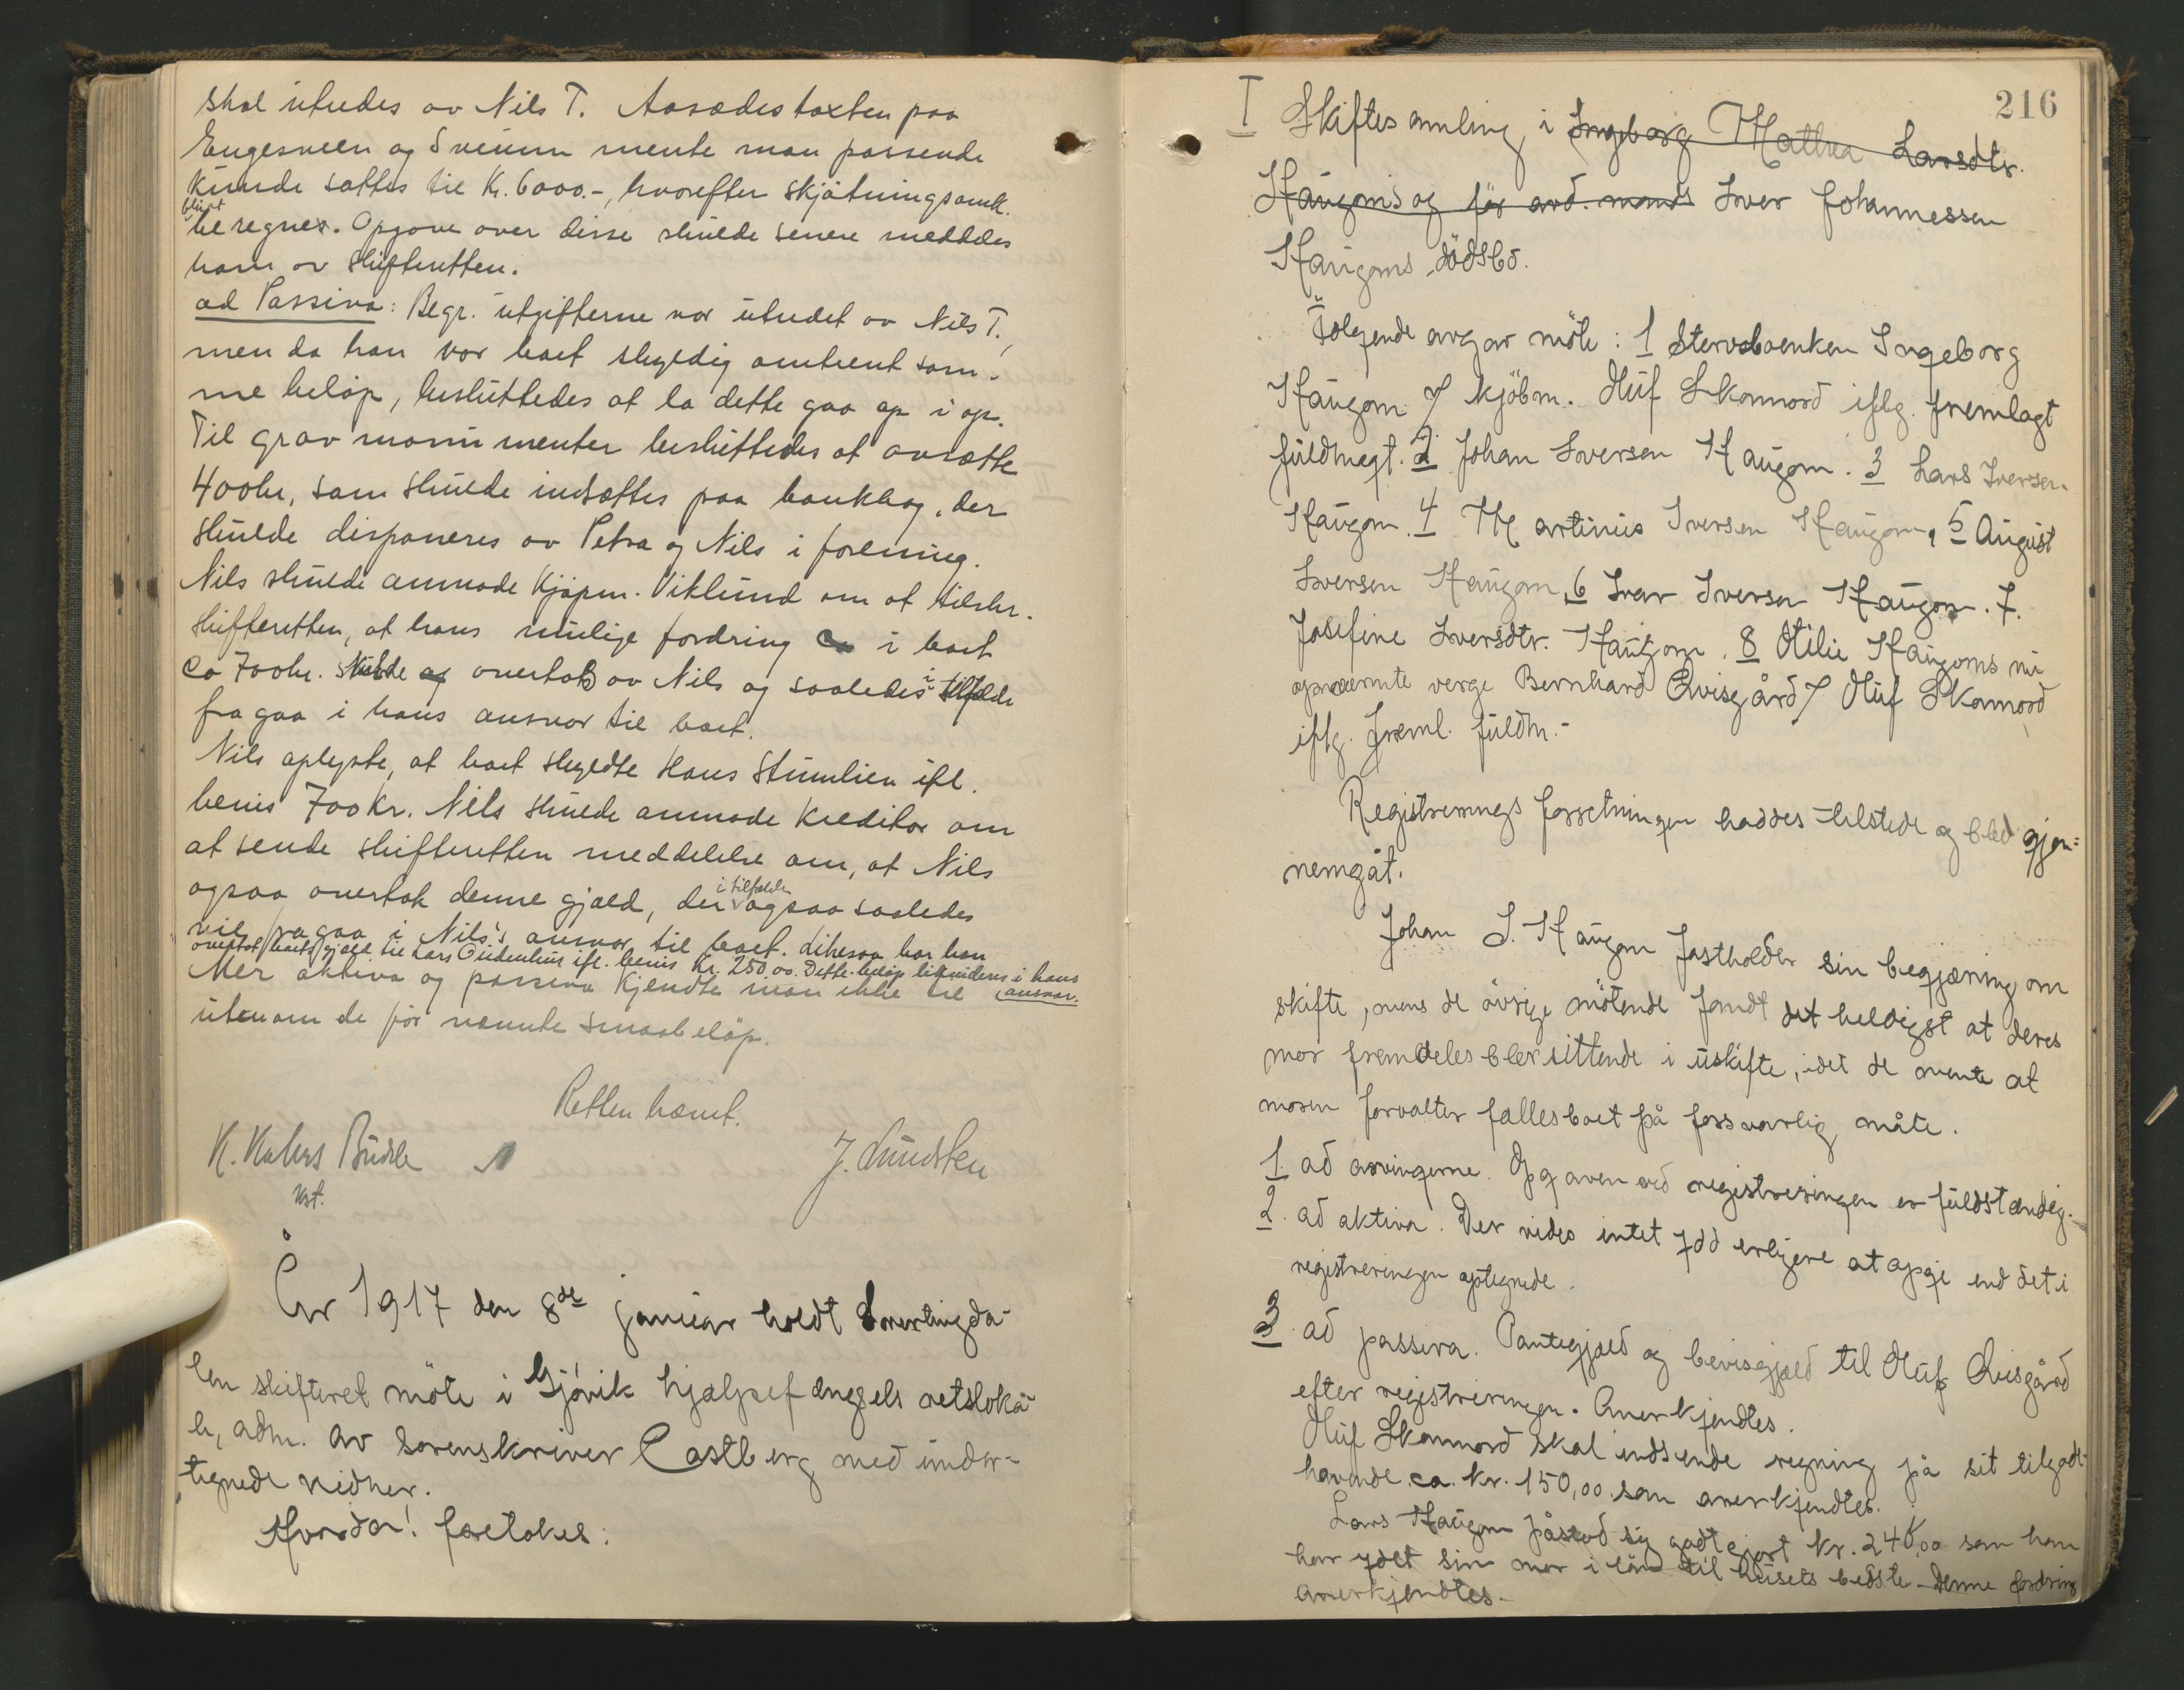 skal utredes av Nils T. Aasædestaxten paa
Engesveen og Sveum mente man passende
kunde sættes til Kr. 6000.-, hvorefter skjøtningsomk.
blir at
beregnes. Opgave over disse skulde senere meddeles
ham av skifteretten.
ad Passiva: Begr. utgifterne var utredet av Nils T.,
men da han var boet skyldig omtrent sam-
me beløp, besluttedes at la dette gaa op i op.
Til gravmonumenter besluttedes at avsætte
400 kr, som skulde indsættes paa bankbog, der
skulde disponeres av Petra og Nils i forening.
Nils skulde anmode Kjøpm. Viklund om at tilskr.
skifteretten, at hans mulige fordring i boet
ca 700 kr. skulde overtas av Nils og saaledes i tilfælde
fragaa i hans ansvar til boet.
Nils oplyste, at boet skyldte Hans Stumlien ifl.
bevis 700 Kr. Nils skulde anmode Kreditor om
at sende skifteretten meddelelse om, at Nils
ogsaa overtok denne gjæld, der i tilfælde ogsaa saaledes
vil fragaa i Nils's ansvar til boet. Likesaa har han
overtat boets gjæld til Lars ifl. bevis Kr. 250.00. Dette beløp likvideres i hans
ansvar.
Mer aktiva og passiva kjendte man ikke til
utenom de før nævnte smaabeløp.
Retten hævet.
K. Budde
kst.
J. Lundsten
År 1917 den 8de januar holdt Snertingda-
len skifteret møte i Gjøvik hjælpefængsels retsloka-
le, adm. av sorenskriver Castberg med under-
tegnede vidner.
Hvorda! foretokes:
216
I Skiftesamling i Ingeborg Mathea Larsdtr.
Haugoms og før avd. mands Iver Johannessen
Haugoms dødsbo.
Følgende avgav møte: 1 Stervboenken Ingeborg
Haugom v/ kjøbm. Oluf Skonnord iflg. fremlagt
fuldmagt. 2 Johan Iversen Haugom. 3 Lars Iversen
Haugom. 4 Martinus Iversen Haugom, 5 August
Iversen Haugom, 6 Ivar Iversen Haugom. 7.
Josefine Iversdtr. Haugom. 8 Otilie Haugoms nu
opnævnte verge Bernhard Qvisgård v/ Oluf Skonnord
iflg. freml. fuldm.-
Registreringsforretningen haddes tilstede og blev gjen=
nemgåt.
Johan I. Haugom fastholder sin begjæring om
skifte, mens de øvrige møtende fandt det heldigst at deres
mor fremdeles blev sittende i uskifte, idet de mente at
moren forvalter fællesboet på forsvarlig måte.
1. ad arvingerne. Opgaven ved registreringen er fuldstændig.
2. ad aktiva. Der vides intet ydd erligere at opgi end det i
registreringen optegnede.
3. ad passiva. Pantegjæld og bevisgjæld til Oluf Qvisgård
efter registreringen. Anerkjendtes.
Oluf Skonnord skal indsende regning på sit tilgode-
havende ca. kr. 150,00 som anerkjendtes.
Lars Haugom påstod sig godtgjort kr. 240,00 som han
har ydet sin mor i lån til husets bedste. Denne fordring
anerkjendtes.-